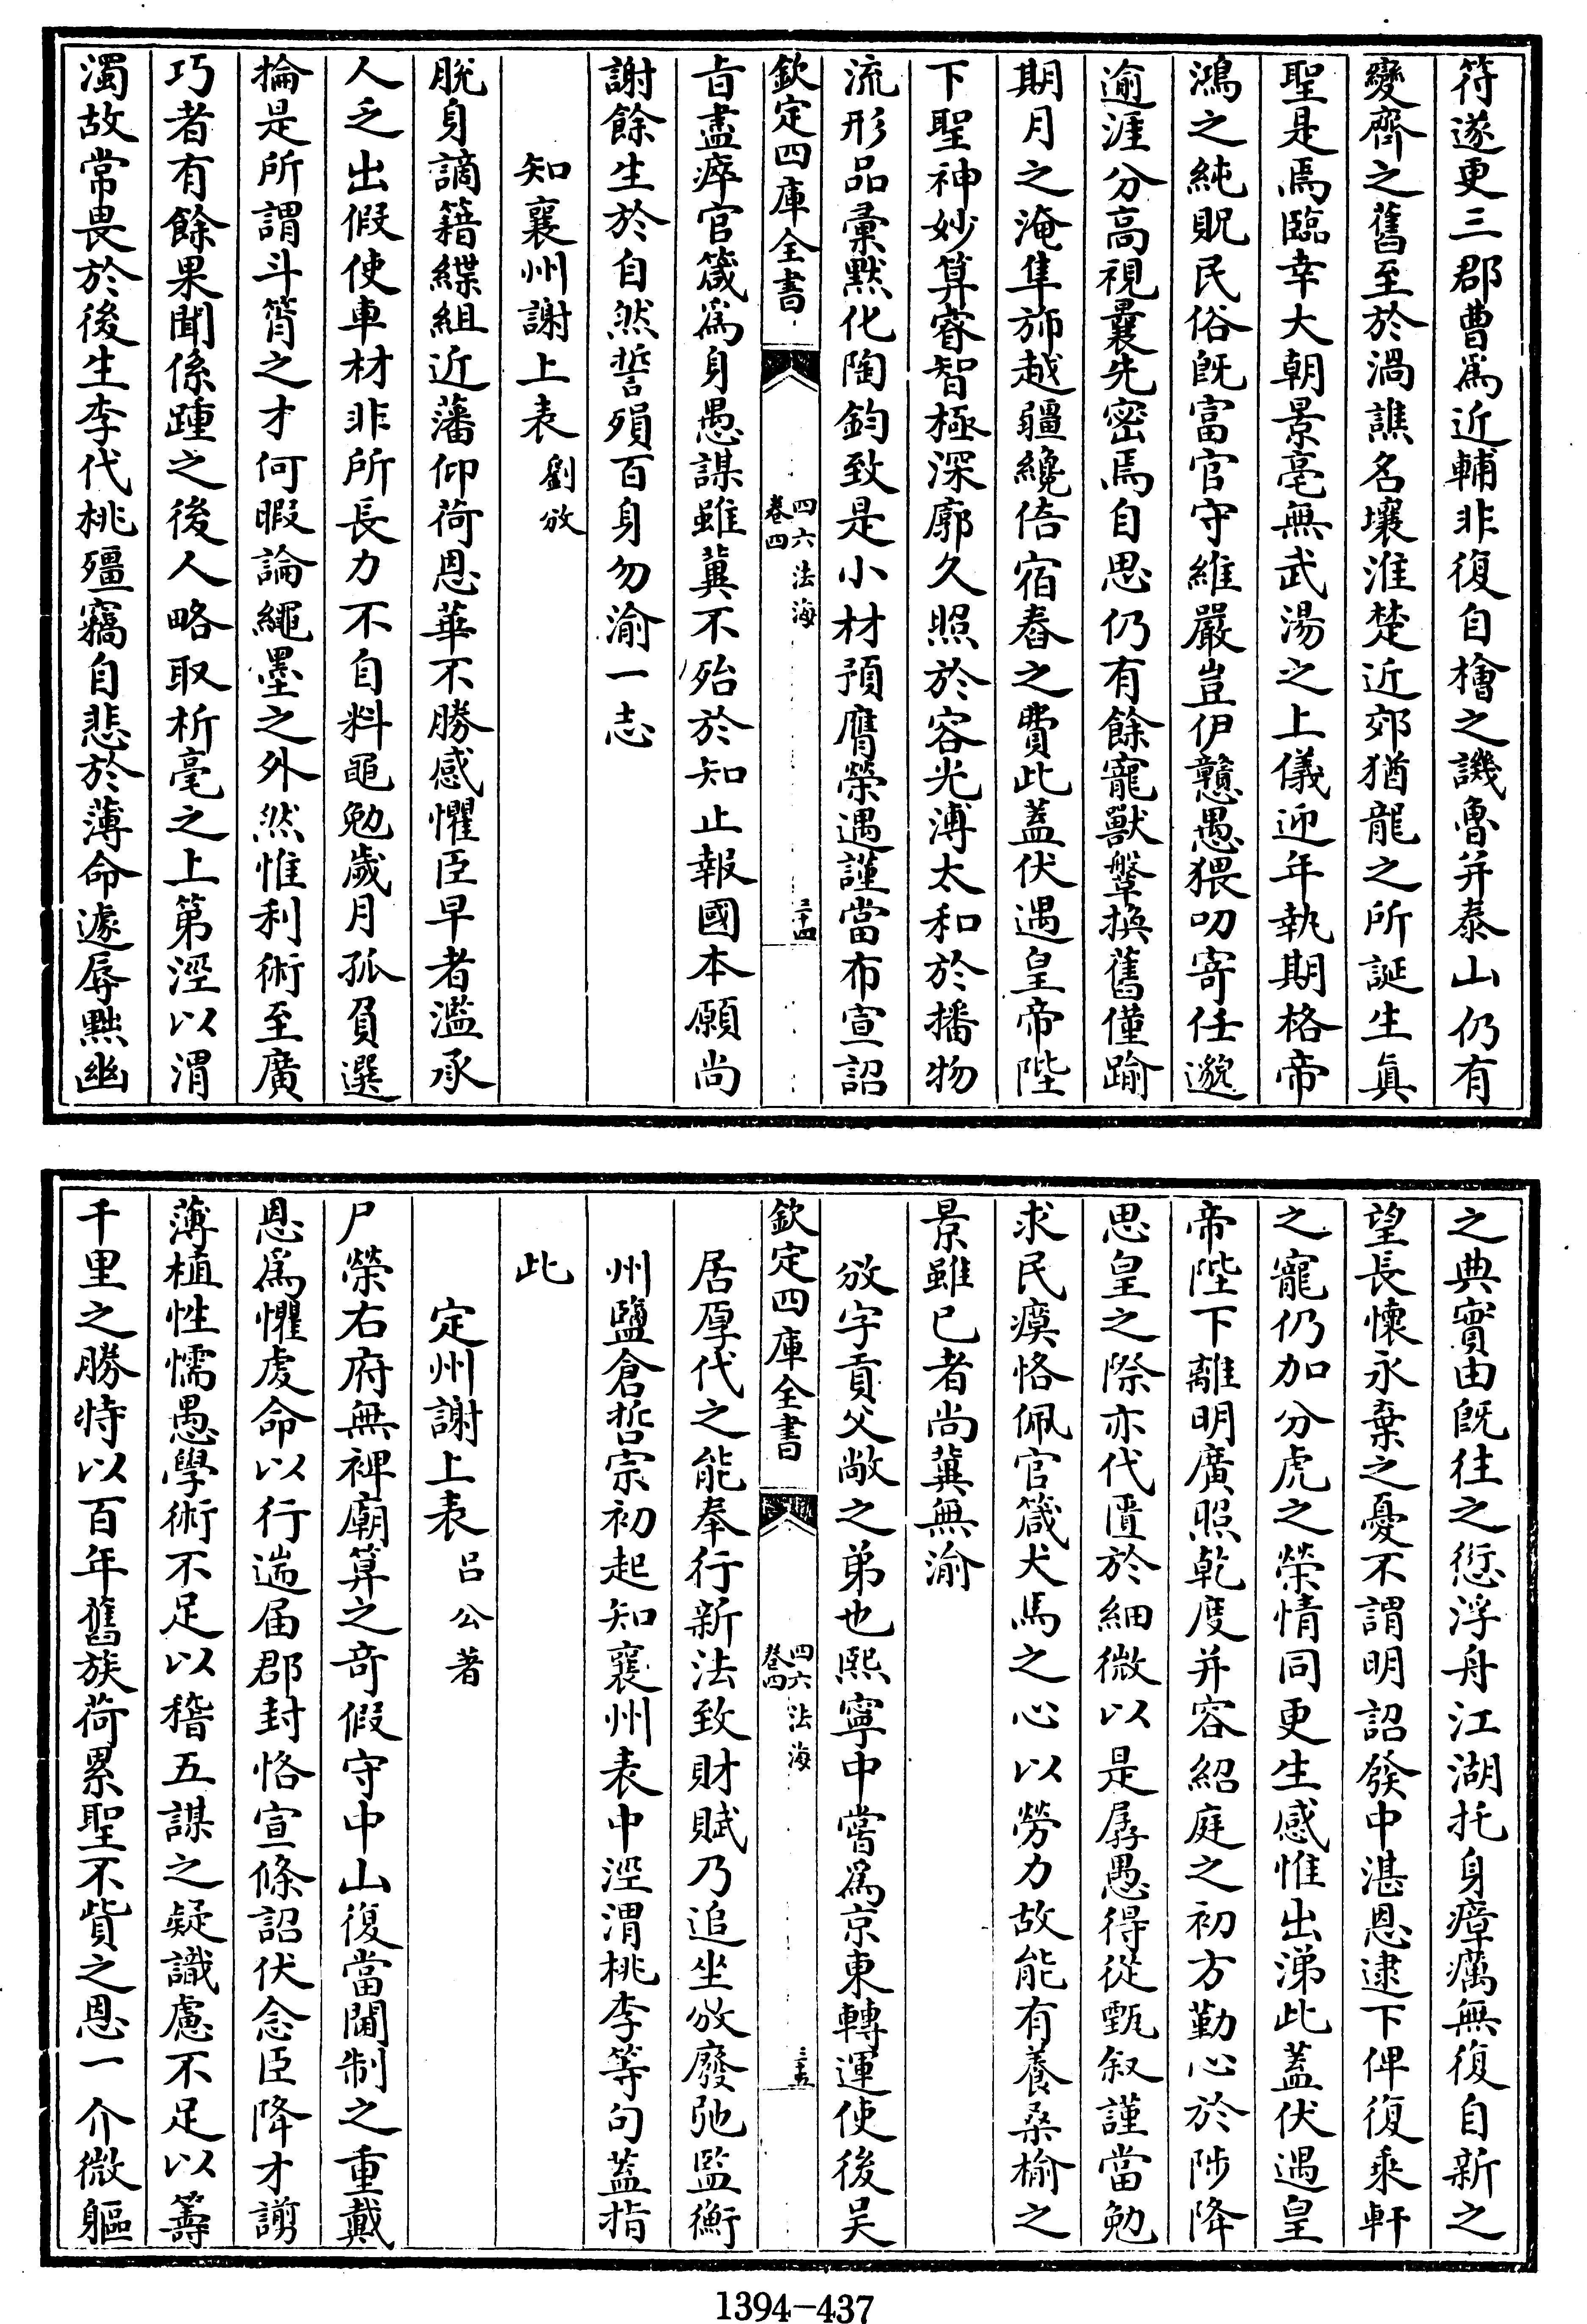 符遂更三郡曹為近輔非復自檜之譏魯并泰山仍有
變齊之舊至於渦譙名壤淮楚近郊猶龍之所誕生真
聖是焉臨幸大朝景亳無武湯之上儀迎年執期格帝
鴻之純貺民俗旣富官守維嚴豈伊戇愚猥叨寄任邈
逾涯分高視曩先密焉自思仍有餘寵獸鞶換舊僅踰
期月之淹隼斾越疆纔佸宿舂之費此蓋伏遇皇帝陛
下聖神妙算睿智極深廓久照於容光溥太和於播物
流形品彙默化陶鈞致是小材預膺榮遇謹當布宣詔
欽定四庫全書
四六法海
卷四
三十四
旨盡瘁官箴為身愚謀雖冀不殆於知止報國本願尚
謝餘生於自然誓殞百身勿渝一志
知襄州謝上表 劉攽
脫身謫籍緤組近藩仰荷恩華不勝感懼臣早者濫承
人乏出假使車材非所長力不自料黽勉歲月孤負選
掄是所謂斗筲之才何暇論繩墨之外然惟利術至廣
巧者有餘果聞係踵之後人略取析毫之上第涇以渭
濁故常畏於後生李代桃殭竊自悲於薄命遽辱黜幽
之典實由旣往之愆浮舟江湖托身瘴癘無復自新之
望長懷永棄之憂不謂明詔發中湛恩逮下俾復乘軒
之寵仍加分虎之榮情同更生感惟出涕此蓋伏遇皇
帝陛下離明廣照乾度并容紹庭之初方勤心於陟降
思皇之際亦代匱於細微以是孱愚得從甄叙謹當勉
求民瘼恪佩官箴犬馬之心以勞力故能有養桑榆之
景雖已者尚冀無渝
攽字貢父敞之弟也熙寧中嘗為京東轉運使後吴
欽定四庫全書
四六法海
卷四
三十五
居厚代之能奉行新法致財賦乃追坐攽廢弛監衡
州鹽倉哲宗初起知襄州表中涇渭桃李等句蓋指
此
定州謝上表 吕公著
尸榮右府無裨廟算之竒假守中山復當閫制之重戴
恩為懼虔命以行遄届郡封恪宣條詔伏念臣降才謭
薄植性懦愚學術不足以稽五謀之疑識慮不足以籌
千里之勝恃以百年舊族荷累聖不貲之恩一介微軀
1394-437